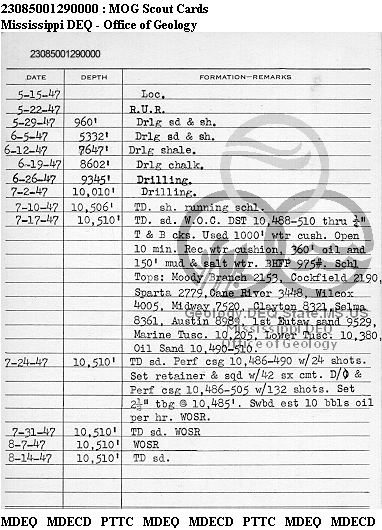 23085001290000 : MOG Scout Cards
Mississippi DEQ - Office of Geology
23085001290000
DATE DEPTH FORMATION—REMARKS
5-15-47 Loc.
5-22-47 R.U.R.
5-29-47 960' Drlg sd & sh.
6-5-47 5332' Drlg sd & sh.
6-12-47 7647' Drlg shale.
6-19-47 8602' Drlg chalk.
6-26-47 9345' Drilling.
7-2-47 10,010' Drilling.
7-10-47 10,506' TD. sh. running schl.
7-17-47 10,510' TD. sd. W.O.C. DST 10,488-510 thru ¼"
T & B cks. Used 1000' wtr cush. Open
10 min. Rec wtr cushion, 360' oil and
150' mud & salt wtr. BHFP 975#. Schl
Tops: Moody Branch 2153, Cockfield 2190,
Sparta 2779, Cane River 3448, Wilcox
4005, Midway 7520, Clayton 8321, Selma
8361, Austin 8989, 1st Eutaw sand 9529,
Marine Tusc. 10,205, Lower Tusc. 10,380,
Oil Sand 10,490-510.
Geology.DEQ.State.MS.US
Mississippi DEQ
Office of Geology
7-24-47 10,510' TD sd. Perf csg 10,486-490 w/24 shots.
Set retainer & sqd w/42 sx cmt. D/O &
Perf csg 10,486-505 w/132 shots. Set
2½" tbg @ 10,485'. Swbd est 10 bbls oil
per hr. WOSR.
7-31-47 10,510' TD sd. WOSR
8-7-47 10,510' WOSR
8-14-47 10,510' TD sd.
MDEQ MDECD PTTC MDEQ MDECD PTTC MDEQ MDECD